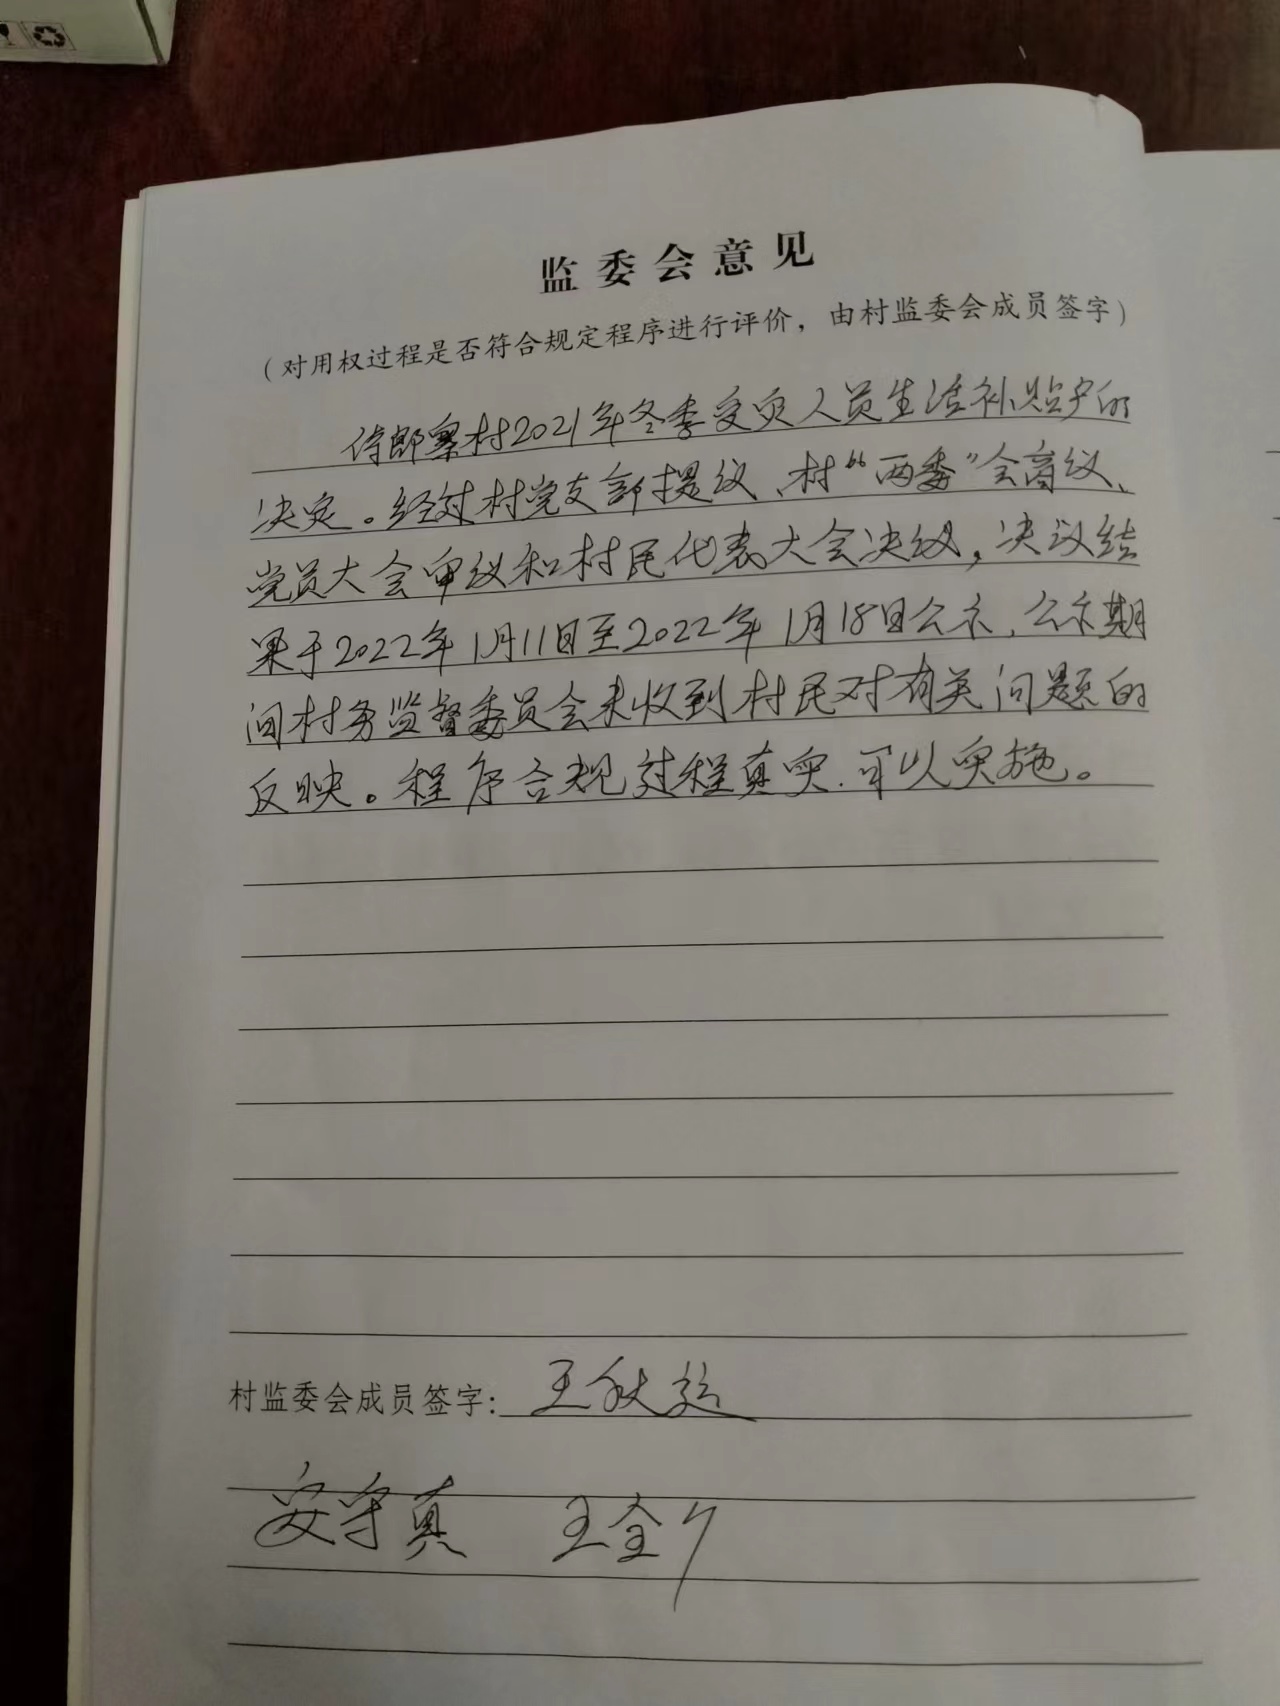 监委会意见
（对用权过程是否符合规定程序进行评价，由村监委会成员签字）
侍郎寨村2021年冬季受灾人员生活补贴户的
决定。经过村党支部提议、村“两委”会商议、
党员大会审议和村民代表大会决议，决议结
果于2022年1月11日至2022年1月18日公示，公示期
间村务监督委员会未收到村民对有关问题的
反映。程序合规过程真实.可以实施。
村监委会成员签字：王秋
安守真 王全